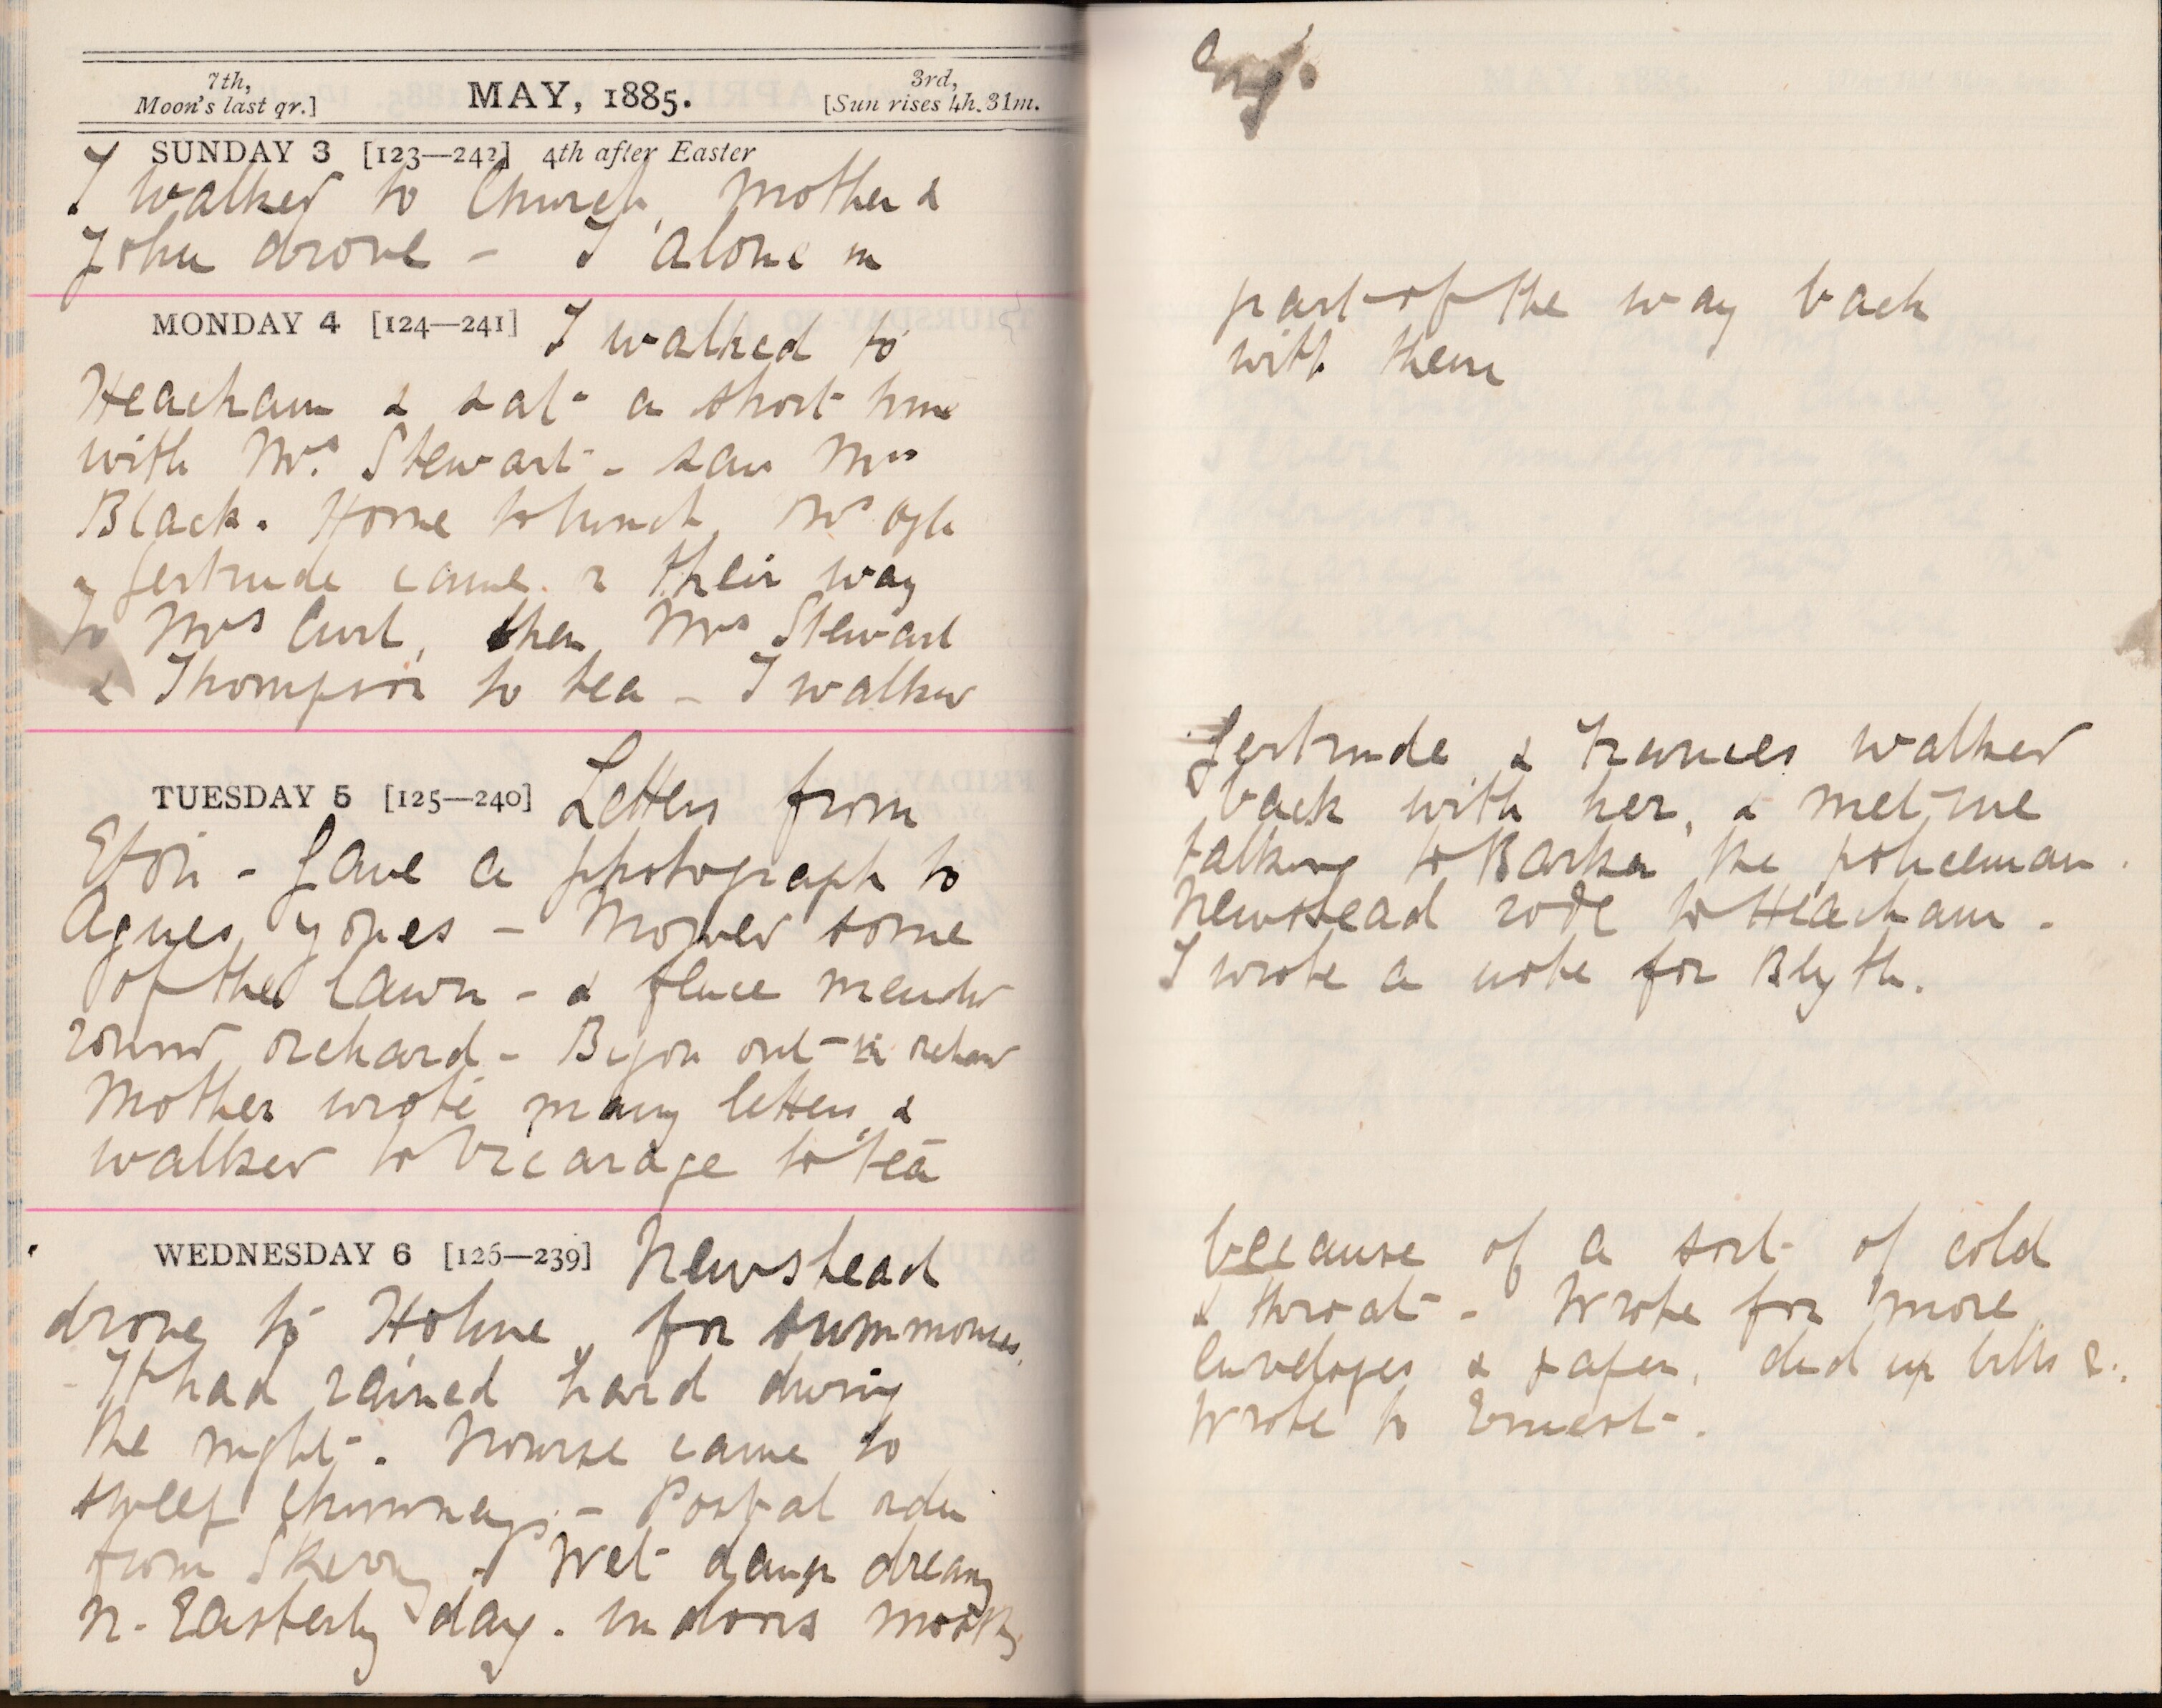 7th,
Moon's last qr.]
MAY, 1885.
3rd,
[Sun rises 4h. 31m.
SUNDAY 3 [123—242] 4th after Easter
I walked to Church, Mother &
John drove - I alone in
evg.
MONDAY 4 [124—241] I walked to
Heacham & sat a short time
with Mrs. Stewart - saw Mrs
Black. Home to lunch, Mrs Ogle
& Gertrude came on their way
to Mrs Curl, then Mrs Stewart
& Thompson to tea - I walked
part of the way back
with them
TUESDAY 5 [125—240] Letters from
Eton - Gave a photograph to
Agnes Jones - Mowed some
of the lawn - & fence mended
round orchard - Bijou out in orchard
Mother wrote many letters, &
walked to Vicarage to tea
Gertrude & Frances walked
back with her, & met me
talking to Barker the policeman.
Newstead rode to Heacham -
I wrote a note for Blyth.
WEDNESDAY 6 [126—239] Newstead
drove to Holme for summonses.
- It had rained hard during
the night. Nourse came to
sweep chimneys. - Postal order
from Skerry. Wet damp dreary
N. Easterly day. Indoors mostly
because of a sort of cold
& throat - Wrote for more
envelopes & paper, did up bills &.
Wrote to Ernest.